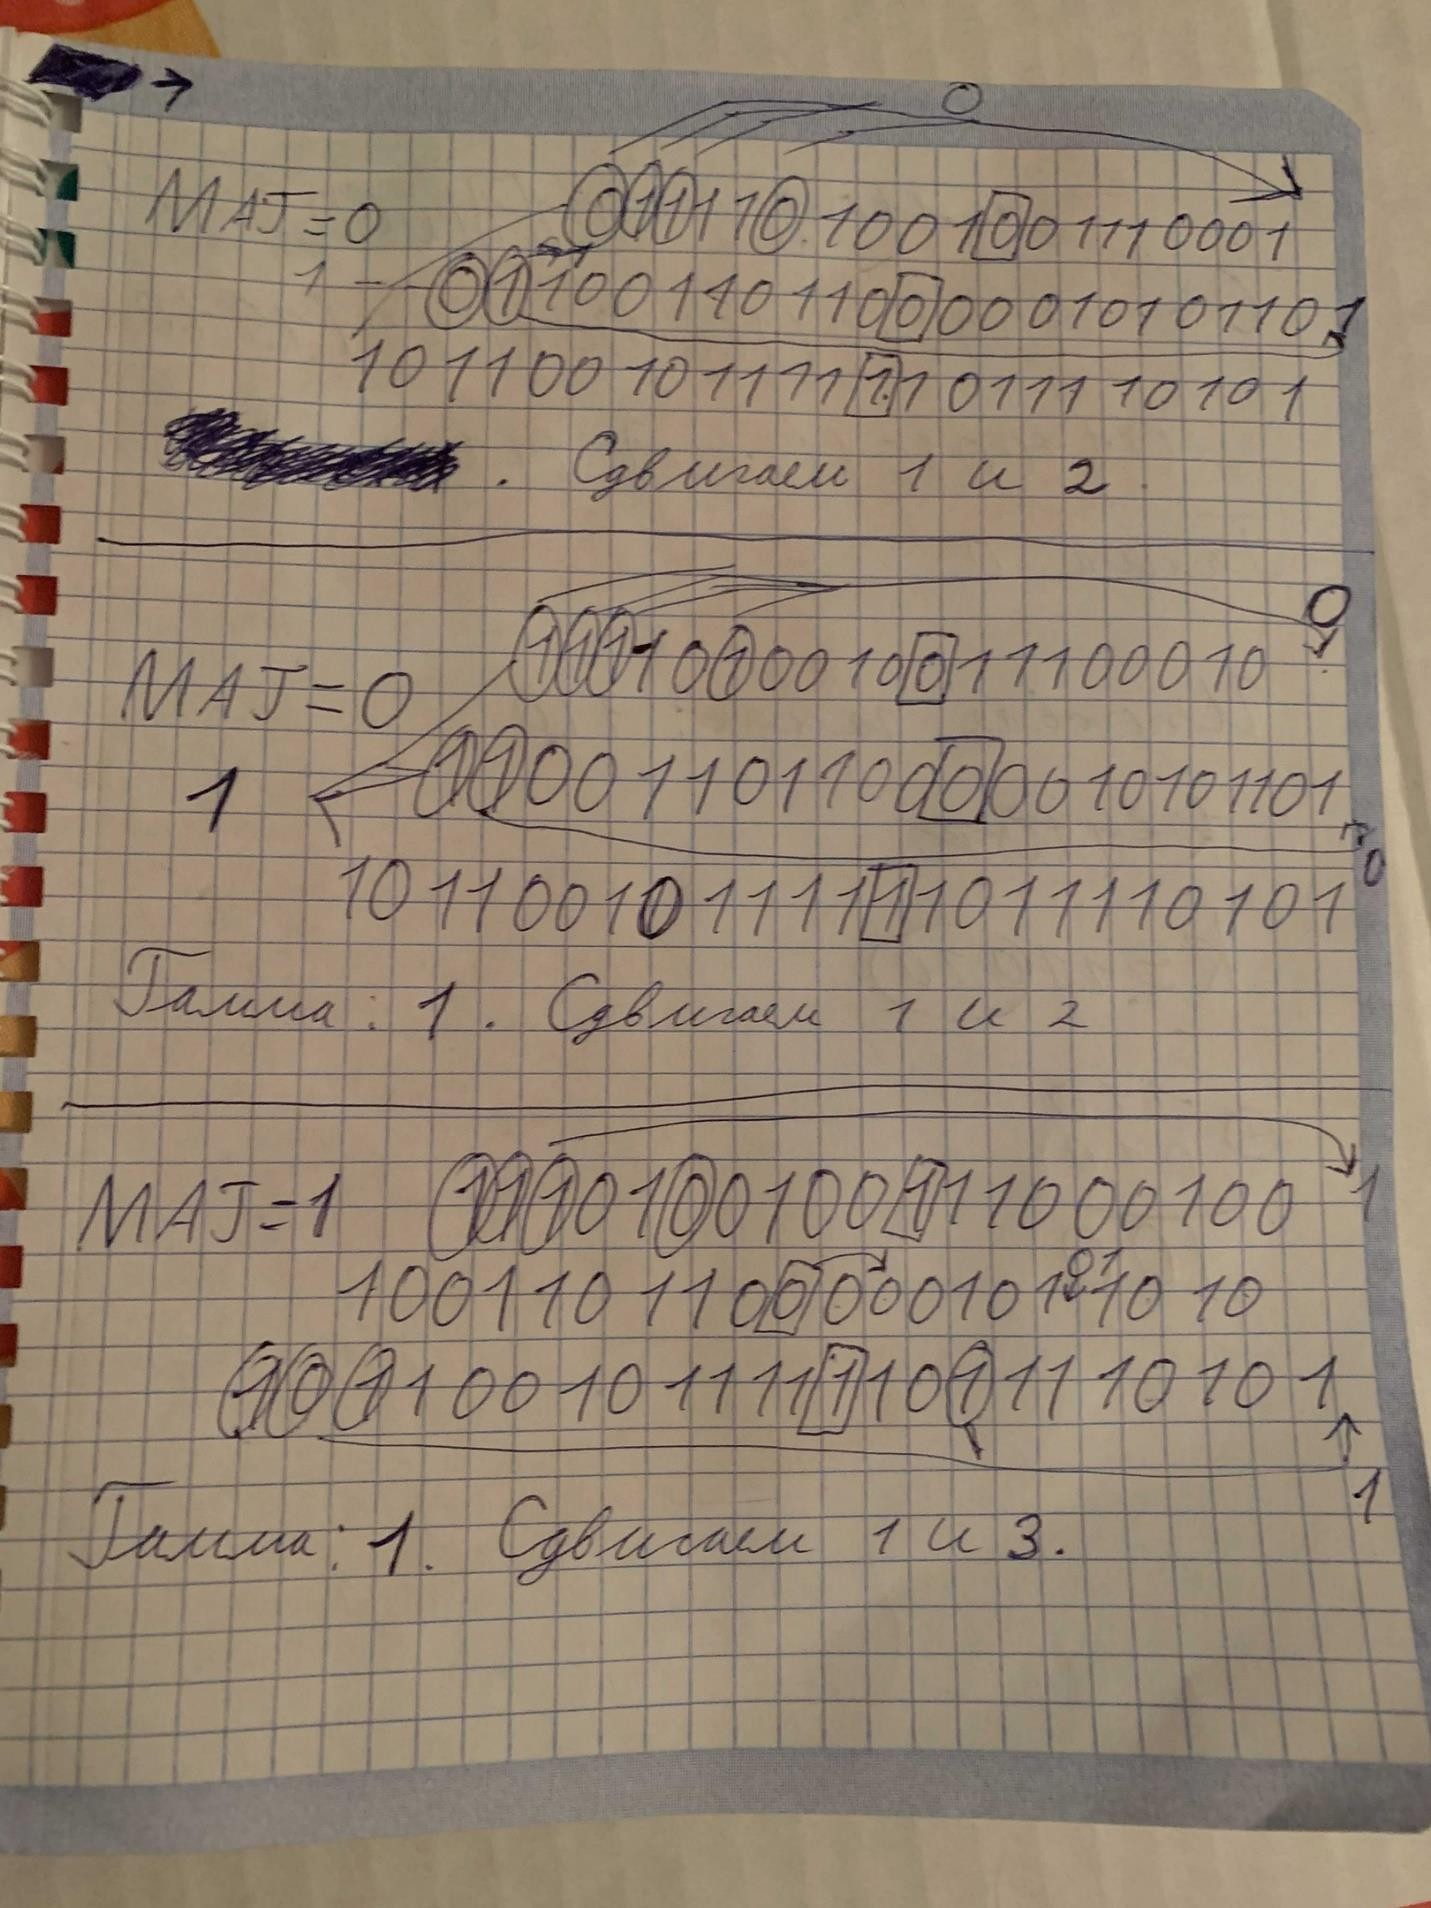 0
MAJ=0 0111101001001110001
1 0110011011000001010 11011
10110010111111011110101
Сдвигаем 1 и 2.
0
MAJ=0 1111010001001110 0010
1 1100110110000010101101
0
10110010111111011110101
Гамма: 1. Сдвигаем 1 и 2
MAJ=1 1110100100111000100 1
01
1001101100000101 1010
10110010111111011110101
1
Гамма: 1. Сдвигаем 1 и 3.